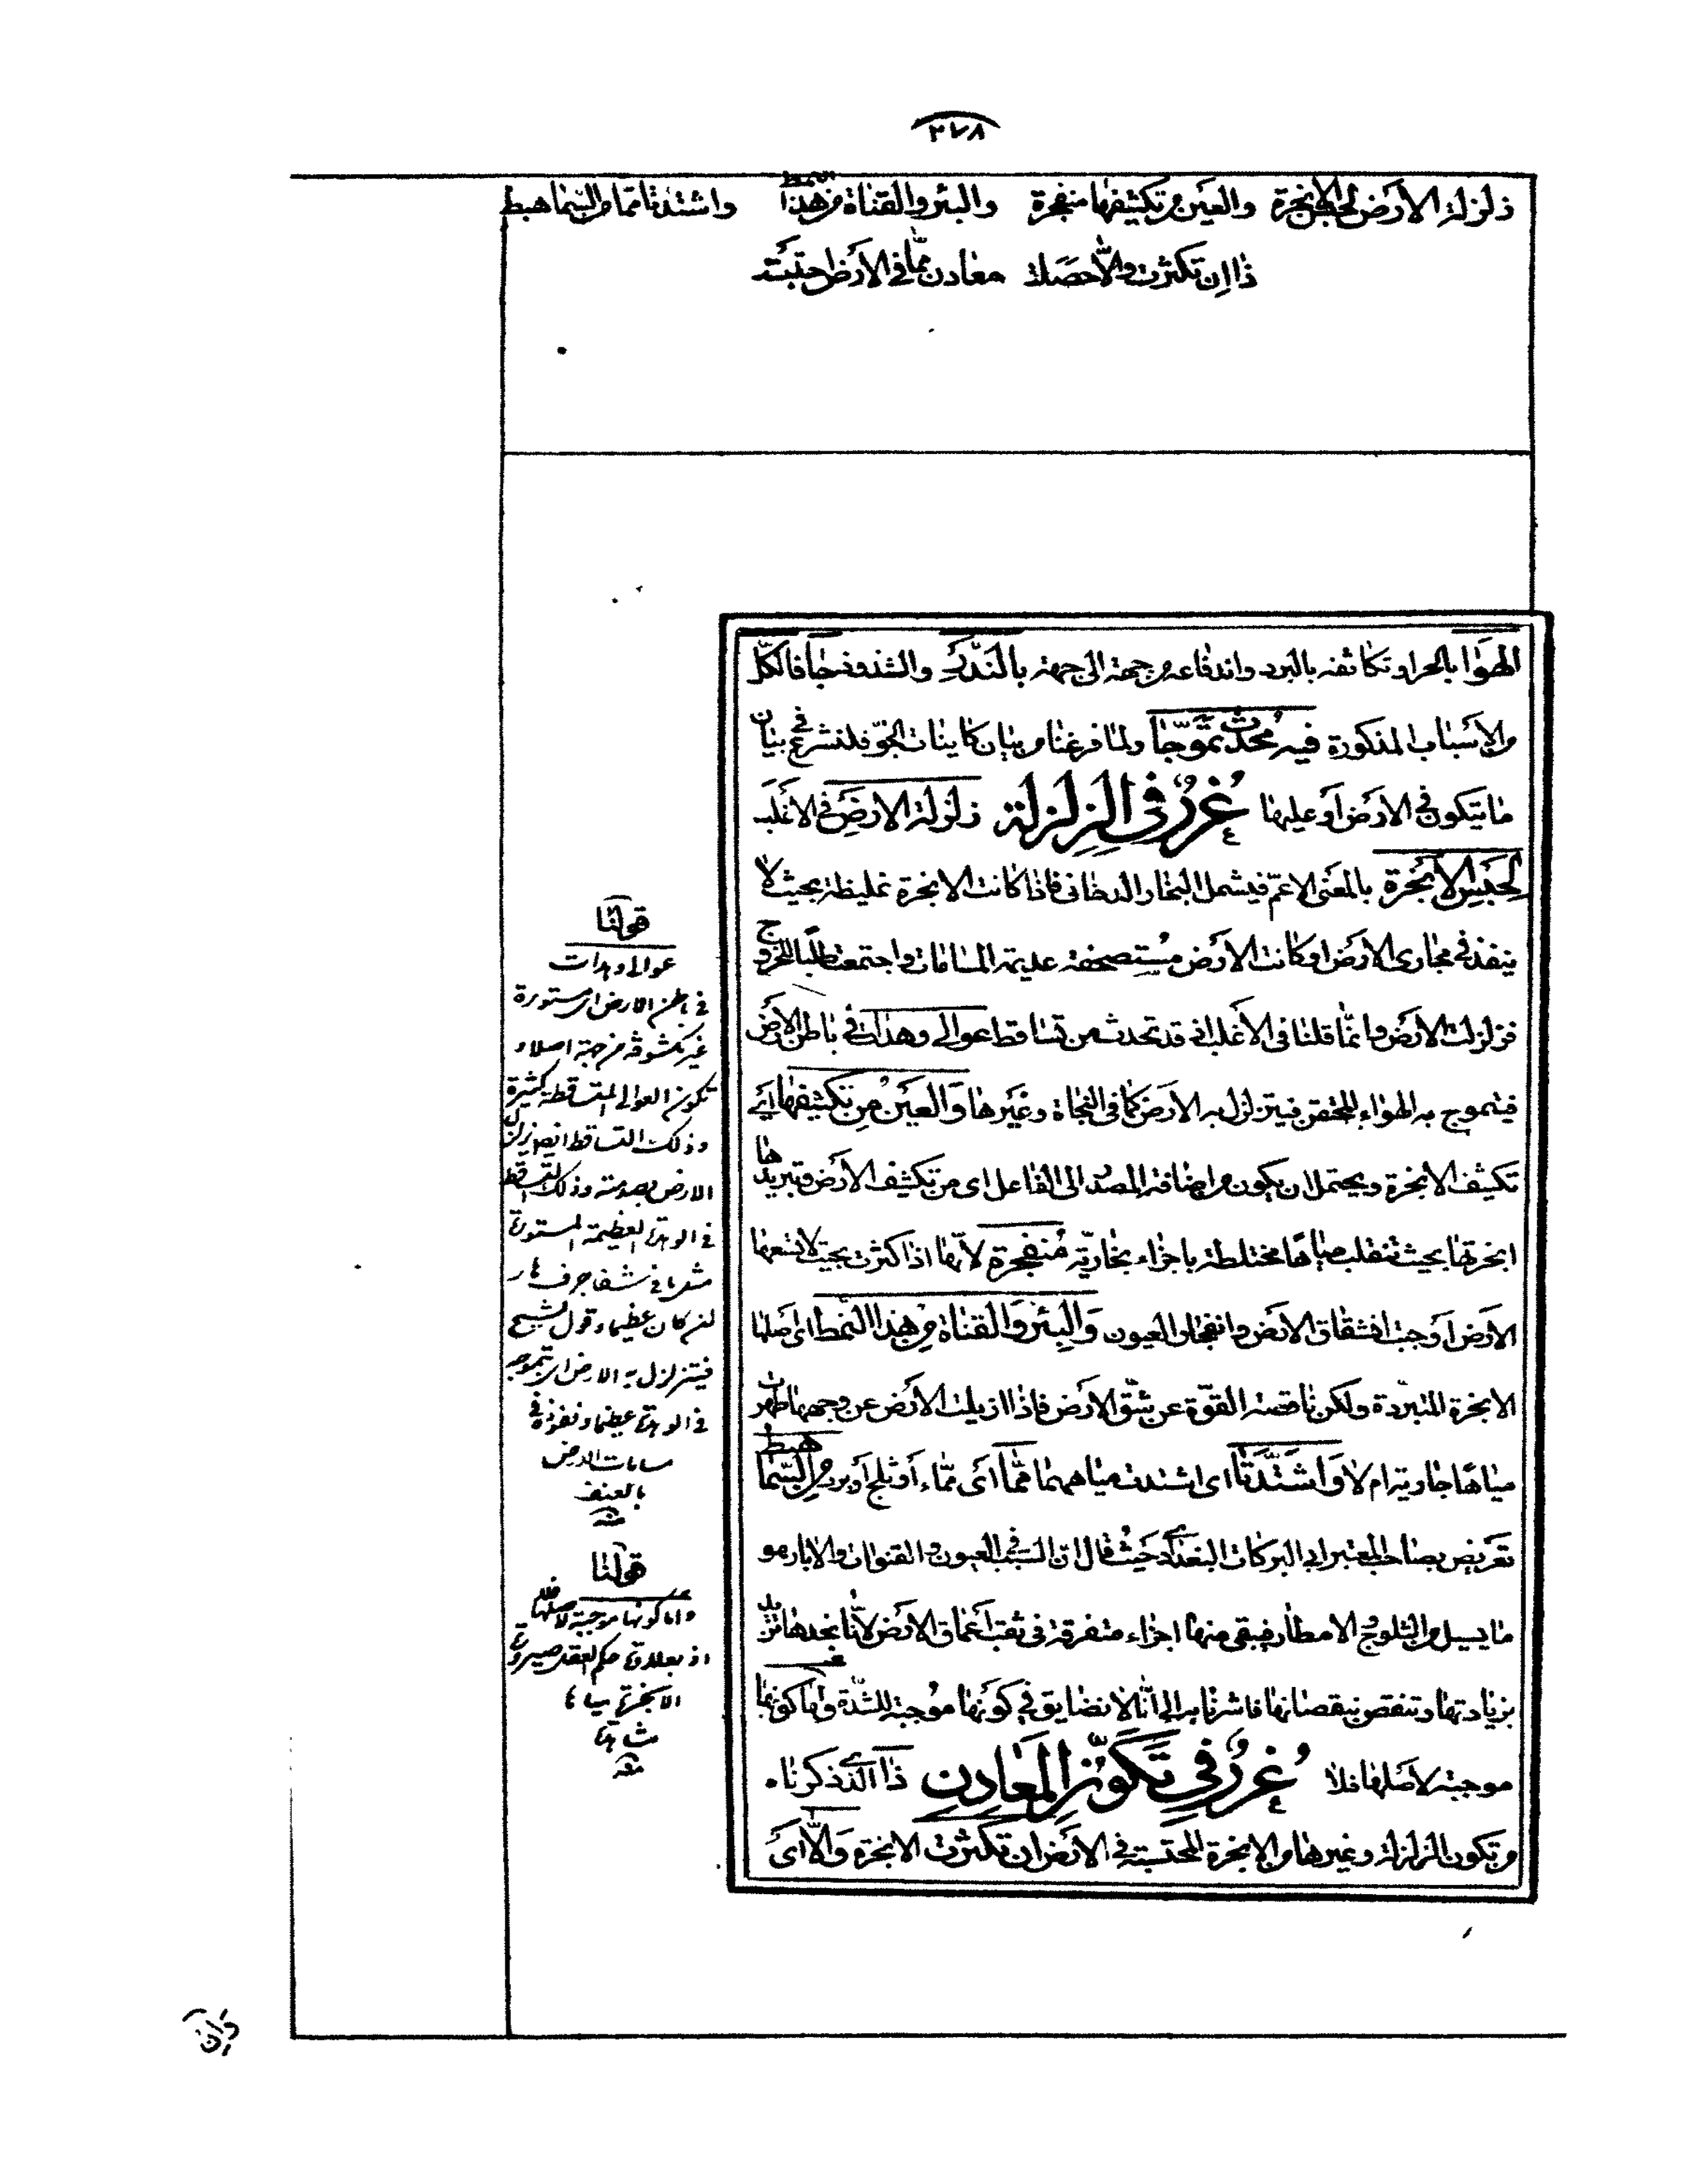 ٢٧٨
زلزلة الأرض لحبس الأبخرة والعين من تكثيفها منفجرة والبئر والقناة من هذا النمط واشتدتا مما من السما هبط
ذا إن تكثرت وإلا حصلت معادن مما في الأرض احتبست
الهوا بالحر او تكاثفه بالبرد واندفاعه من جهة الى جهة بالندرك والشذوذ جا فالكل
من الأسباب المذكورة فيه محدث تموجا ولما فرغنا من بيان كاينات الجو فلنشرع في بيان
ما يتكون في الأرض أو عليها غرر في الزلزلة زلزلة الأرض في الاغلب
لحبس الأبخرة بالمعنى الاعم فيشمل البخار والدخان فاذا كانت الابخرة غليظة بحيث لا
ينفذ في مجارى الأرض او كانت الأرض مستصحفة عديمة المسامات واجتمعت طلبا للخروج
زلزلت الأرض وانما قلنا في الأغلب اذ قد تحدث من تساقط عوالي وهدات في باطن الأرض
فيتموج به الهواء المحتقن فيتزلزل به الأرض كما في النجاة وغيرها والعين من تكثيفها أي
تكثيف الابخرة ويحتمل ان يكون من اضافة المصدر الى الفاعل اى من تكثيف الأرض وتبريدها
ابخرتها بحيث تنقلب مياها مختلطة باجزاء بخارية منفجرة لأنها اذا كثرت بحيث لا تسعها
الأرض أوجبت انشقاق الأرض وانفجار العيون والبئر والقناة من هذا النمط اى اصلها
الابخرة المتبردة ولكن ناقصة القوة عن شق الأرض فاذا ازيلت الأرض عن وجهها ظهرت
مياها جارية ام لا واشتدتا اى اشتدت مياههما مما أى مماء أو ثلج أو برد من السما هبط
تعريض بصاحب المعتبر ابى البركات البغدادي حيث قال ان السبب في العيون والقنوات والآبار هو
ما يسيل من الثلوج والامطار فيبقى منها اجزاء متفرقة في ثقب أعماق الأرض لأنا نجدها تزيد
بزيادتها وتنقص بنقصانها فاشرنا به الى انا لا نضايق في كونها موجبة للشدة وأما كونها
موجبة لأصلها فلا غرر في تكون المعادن ذا الذي ذكرناه
من تكون الزلزلة وغيرها من الابخرة المحتبسة في الأرض ان تكثرت الابخرة وإلا أى
قولنا
عوالى وهدات
في باطن الارض اى مستورة
غير مكشوفة من جهة اصلا و
تكون العوالى المتساقطة كثيرة
وذلك التساقط
الارض بصدمته وذلك التساقط
في الوهدة العظيمة المستورة
شفا جرف هار
كان عظيما وقول الشيخ
فيتزلزل به الارض اى بتموجه
في الوهدة عظيما ونفوذه في
مسامات الارض
بالعنف
منه
قولنا
واما كونها موجبة لاصلها فلا
حكم العقل بصيرورة
الابخرة مياها
منه
وإن